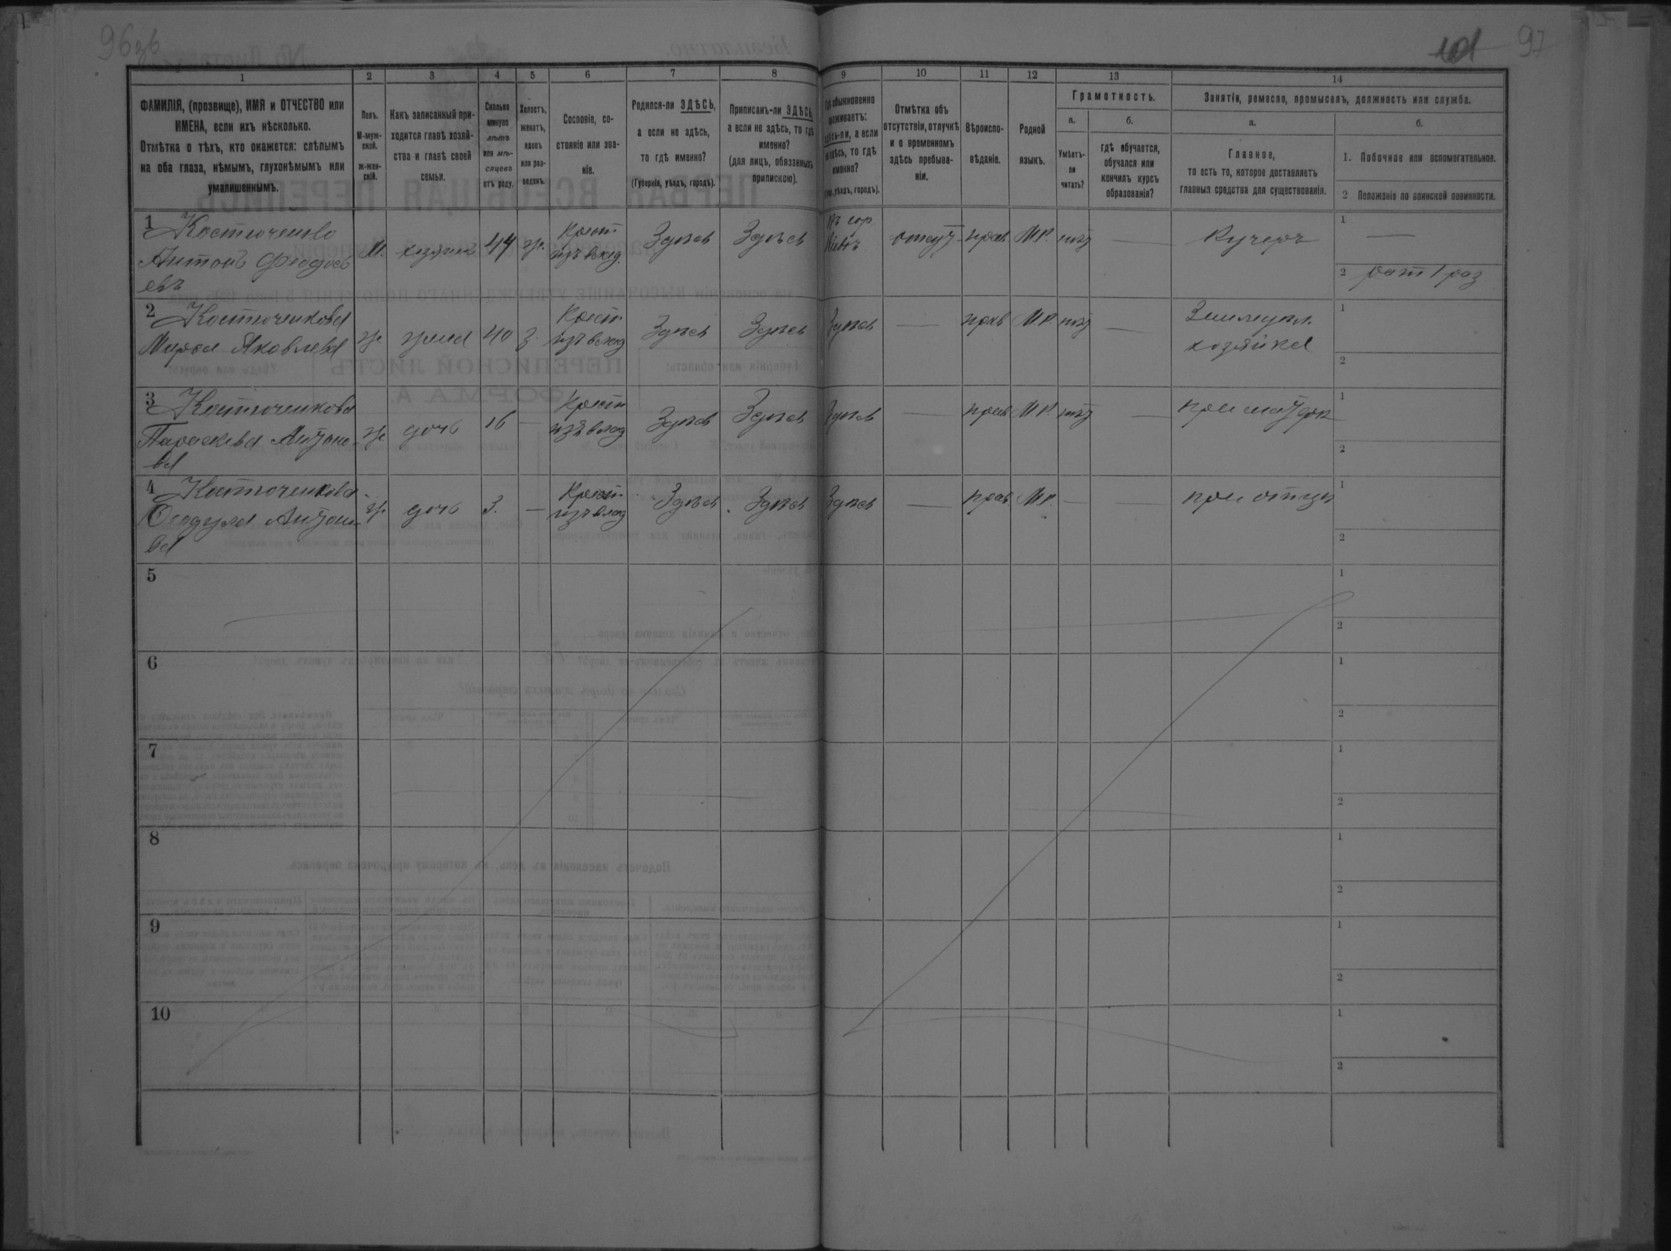 96зв
97
1 2 3 4 5 6 7 8 9 10 11 12 13 14
ФАМИЛІЯ, (прозвище), ИМЯ и ОТЧЕСТВО или
ИМЕНА, если ихъ нѣсколько.
Отмѣтка о тѣхъ, кто окажется: слѣпымъ
на оба глаза, нѣмымъ, глухонѣмымъ или
умалишоннымъ.
Полъ.
М-муж-
ской.
Ж-жен-
скій.
Какъ записанный при-
ходится главѣ хозяй-
ства и главѣ своей
семьи.
Сколько
минуло
лѣтъ
или мѣ-
сяцевъ
отъ роду.
Холостъ,
женатъ,
вдовъ
или раз-
веденъ.
Сословіе, со-
стояніе или зва-
ніе.
Родился-ли ЗДѢСЬ,
а если не здѣсь,
то гдѣ именно?
(Губернія, уѣздъ, городъ).
Приписанъ-ли ЗДѢСЬ,
а если не здѣсь, то гдѣ
именно?
(для лицъ, обязанныхъ
припискою).
обыкновенно
проживаетъ:
здѣсь-ли, а если
не здѣсь, то гдѣ
именно?
уѣздъ, городъ).
Отмѣтка объ
отсутствіи, отлучкѣ
и о временномъ
здѣсь пребыва-
ніи.
Вѣроиспо-
вѣданіе.
Родной
языкъ.
Грамотность.
а.
Умѣетъ-
ли
читать?
б.
гдѣ обучается,
обучался или
кончилъ курсъ
образованія?
Занятія, ремесло, промыселъ, должность или служба.
а.
Главное,
то есть то, которое доставляетъ
главныя средства для существованія.
б.
1. Побочное или вспомогательное.
2 Положеніе по воинской повинности.
1 Костюченко
Антонъ Феодось
евъ
М. хозяинъ 44 ж. Крест. изъ влад. Здѣсь Здѣсь Въ гор. Кіевъ отсут. прав. МР. нѣт — Кучеръ
1 —
2 рат 1 раз
2 Костюченкова
Марѳа Яковлева
ж. жена 40 З. Крест. изъ влад Здѣсь Здѣсь Здѣсь — прав МР нѣт — Землеупл. хозяйка
1
2
3 Костюченкова
Параскева Антоно-
ва
ж дочь 16 — Крест изъ влад Здѣсь Здѣсь Здѣсь — прав МР нѣт — при
1
2
4 Костюченкова
Антоно-
ва
ж. дочь 3. — Крест. изъ влад Здѣсь Здѣсь Здѣсь — прав МР. — при отцѣ
1
2
5
1
2
6
1
2
7
1
2
8
1
2
9
1
2
10
1
2